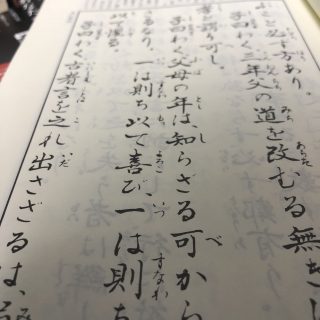 ぶこと必ず方あり。
子曰わく、三年父の道を改むる無き
孝と謂う可し。
子曰わく、父母の年は、知らざる可から
るなり。一は則ち以て喜び、一は則ち
以て懼る。
子曰わく、古者言を之れ出さざるは、